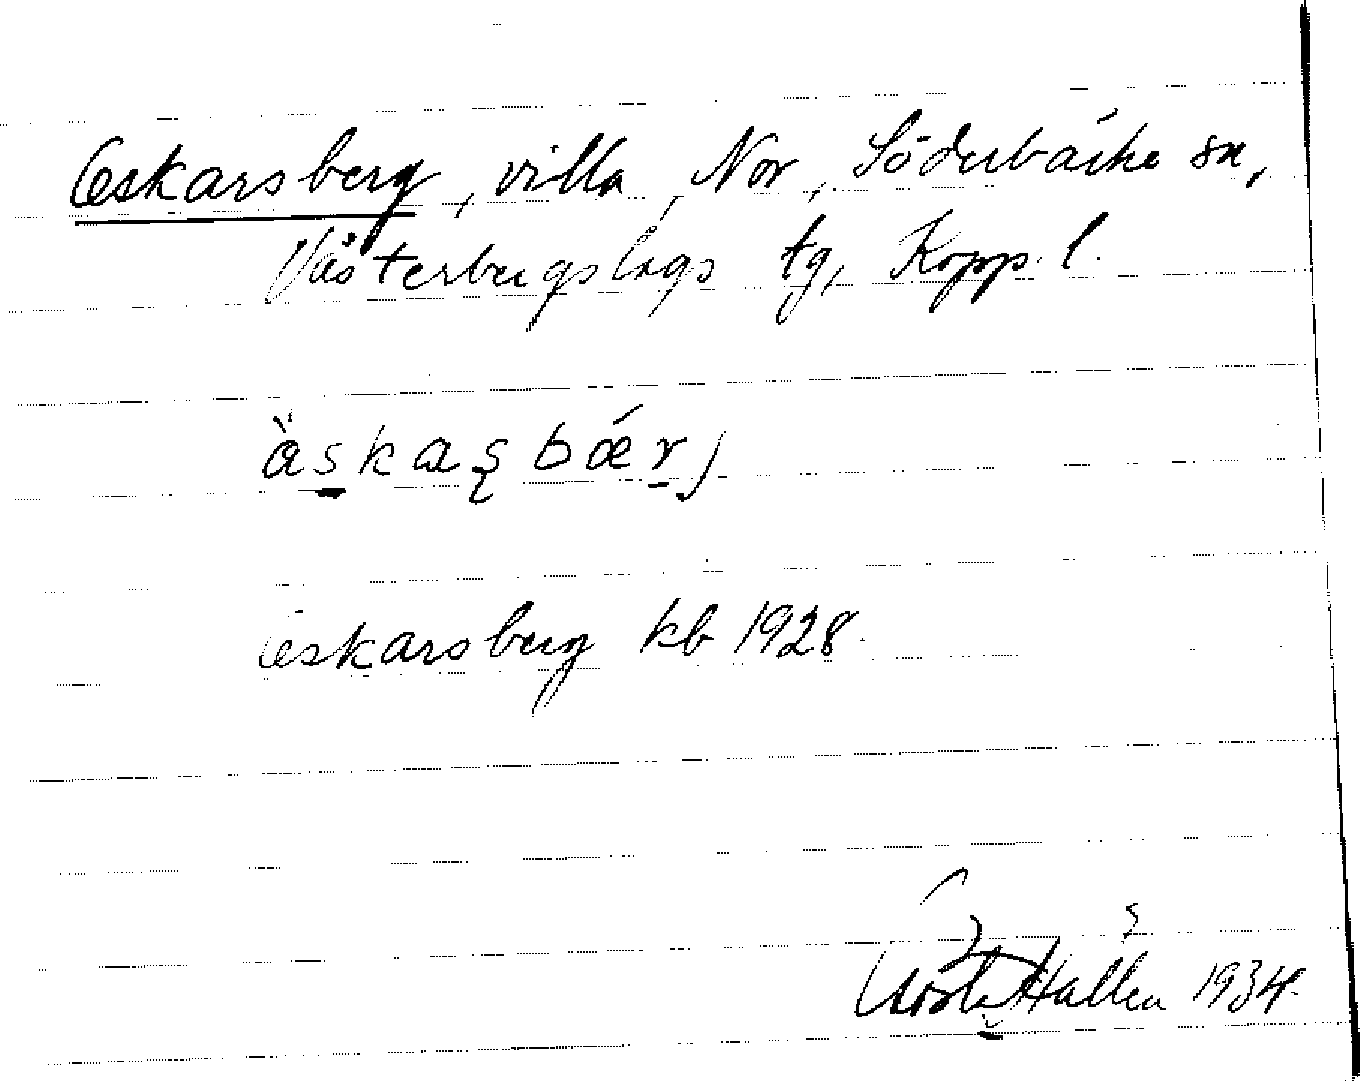 Oskarsberg, villa, Nor, Söderbärke sn,
Västerbergslags tg, Kopp. l.
ås̱kaʂbærj
Oskarsberg kb 1928.
Gösta Hallén 1934.